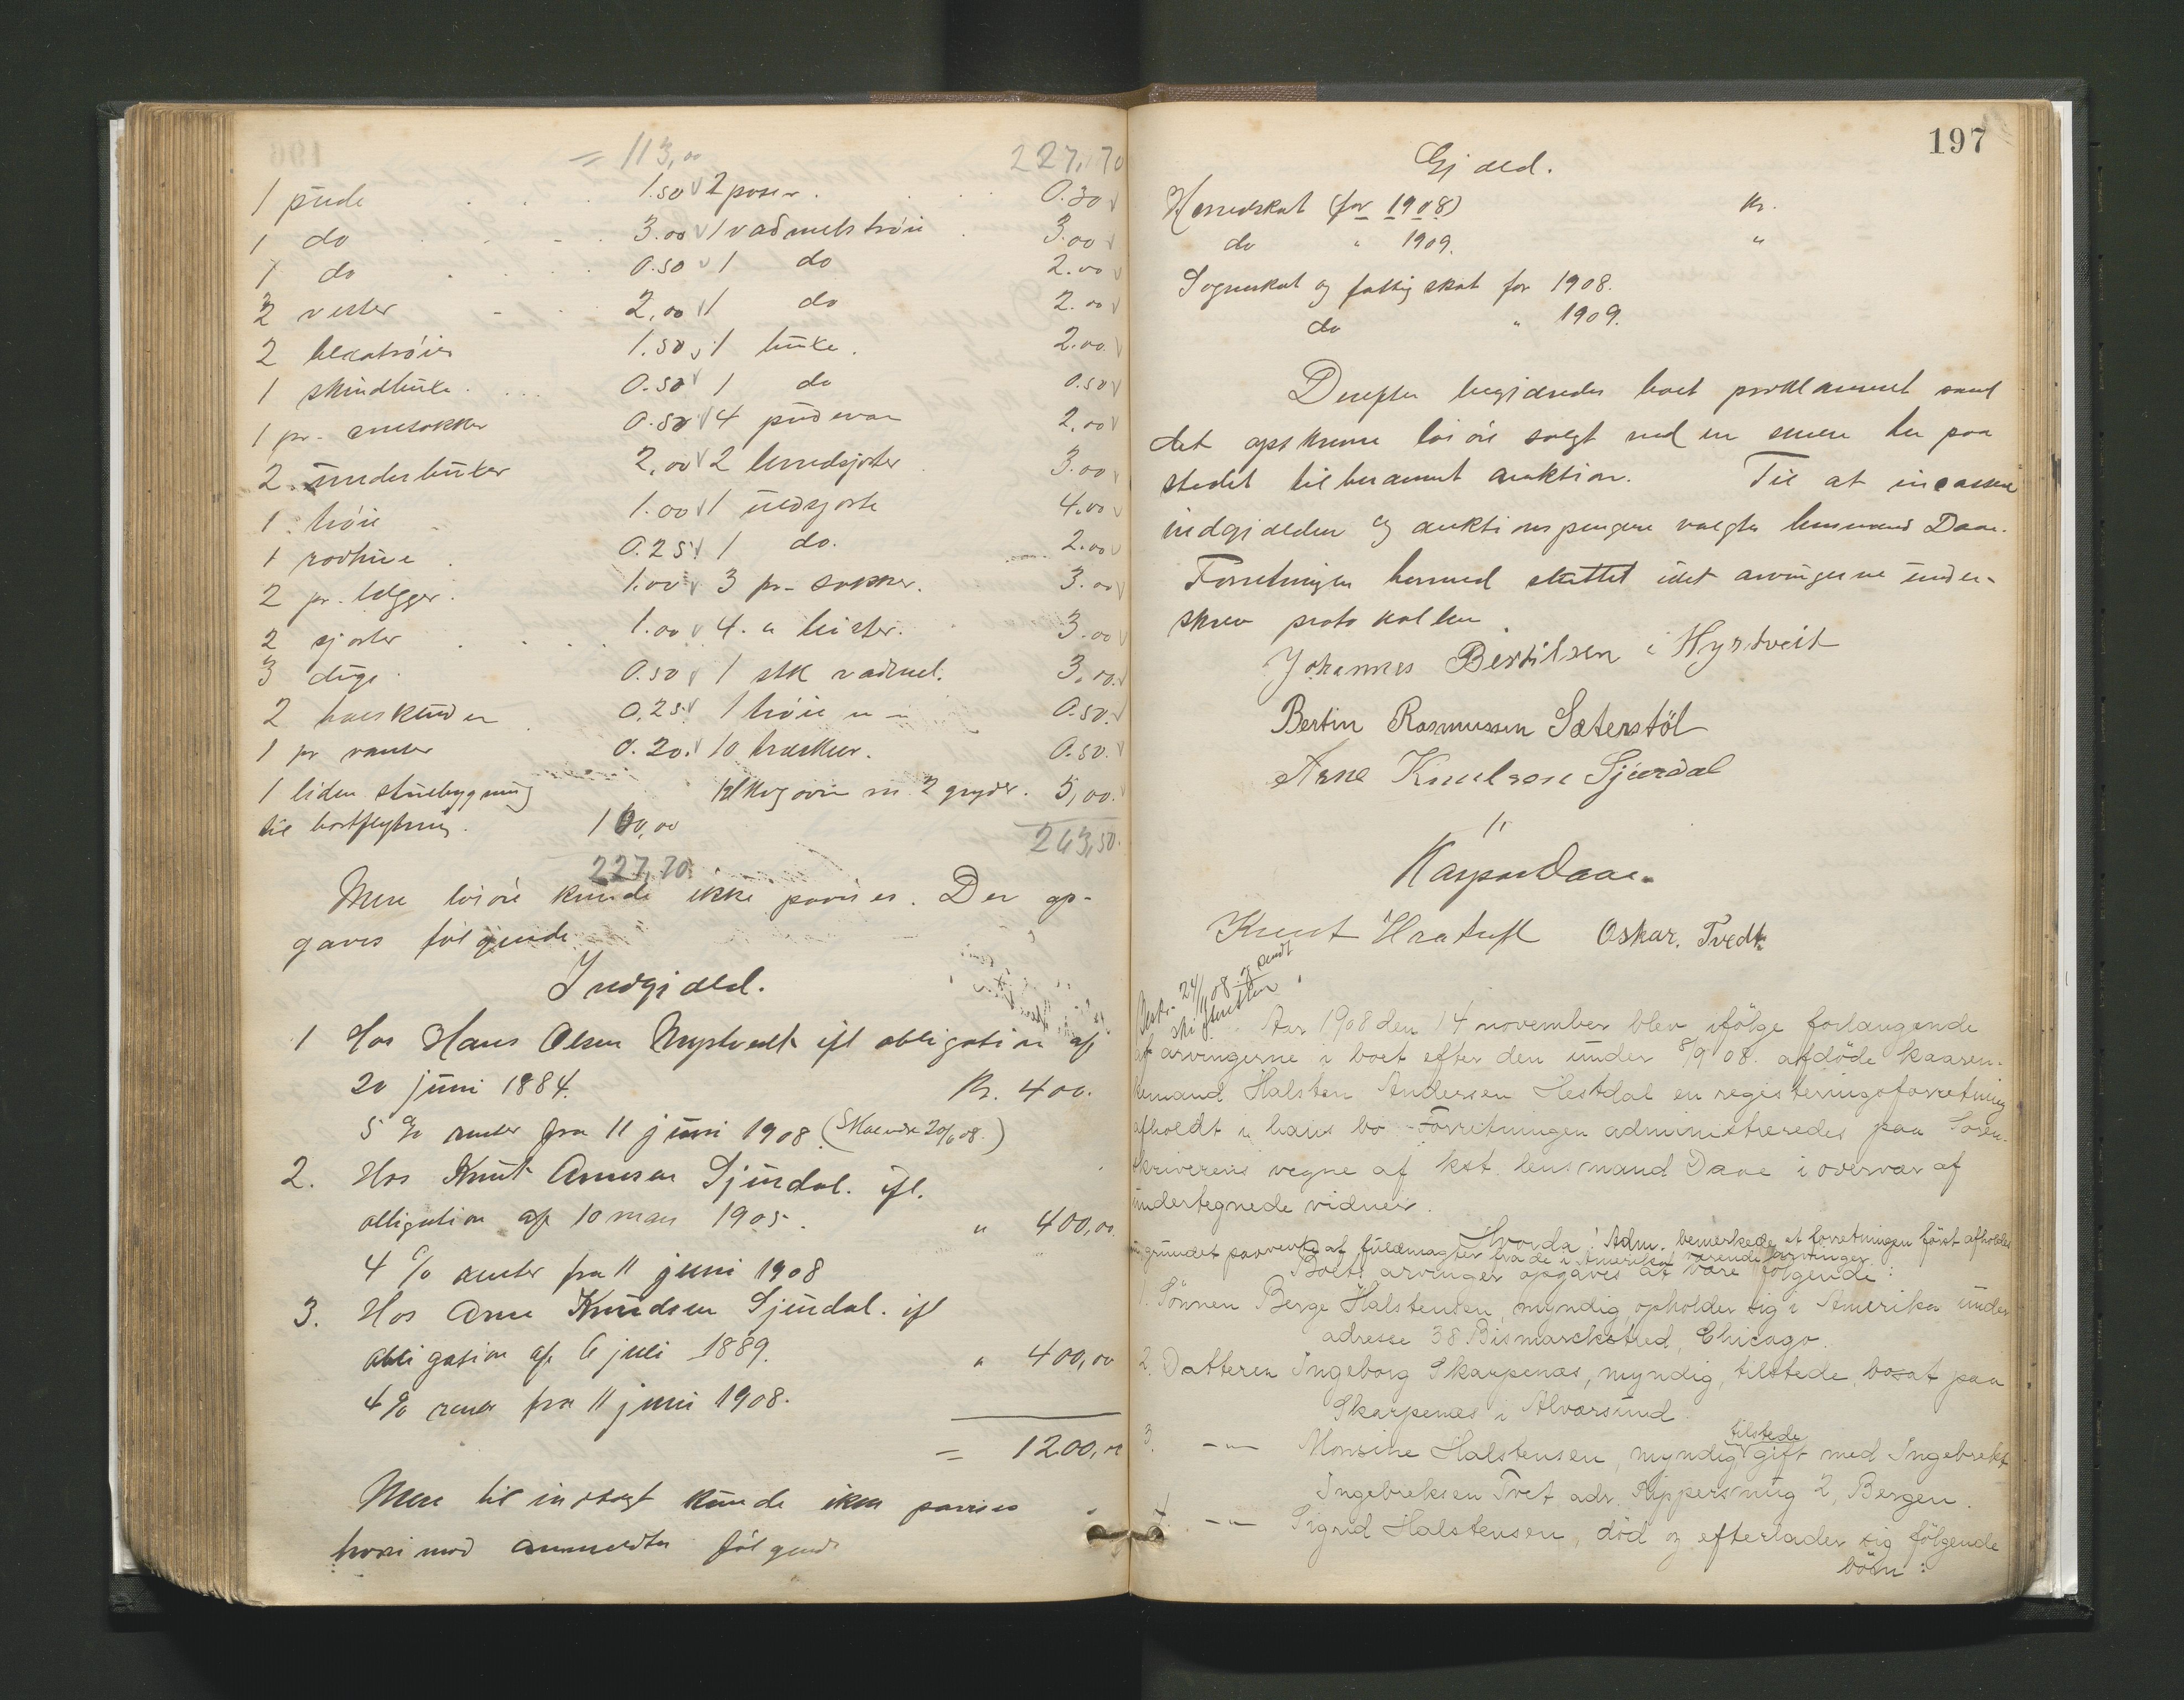 = 113,00 227,70
1 pude 1.50 2 poser. 0.30
1 do 3.00 1 vadmelstrøie 3.00
1 do 0.50 1 do 2.00
2 vester 2,00 1 do 2.00
2 1.50 1 buxe. 2.00
1 skindbuxe. 0.50 1 do 0.50
1 pr. snesokker 0.50 4 pudevar 2,00
2 underbuxer 2,00 2 3.00
1 trøie 1.00 1 uldsjorte 4,00
1 0.25 1 do. 2.00
2 pr. lægger. 1.00 3 pr. sokker. 3.00
2 sjorter 1.00 4 " leister. 3.00
3 duge 0.50 1 stk vadmel. 3,00
2 halskluder 0.25 1 trøie 0.50.
1 pr vanter 0.20. 10 0.50.
1 liden stuebygning 1 kogovn m. 2 gryder. 5,00.
til bortflytning. 100,00 263,50.
227,70
Mere løsøre kunde ikke paavises. Der op-
gaves følgende
Indgjæld.
1 Hos Hans Olsen ifl obligation af
20 juni 1884. Kr. 400.
5 % renter fra 11 juni 1908
2. Hos Knut Arnesen Sjurdal. ifl.
obligation af 10 mars 1905. " 400,00
4 % renter fra 11 juni 1908
3. Hos Arne Knudsen Sjurdal. ifl
obligasion af 6 juli 1889. " 400,00
4 % renter fra 11 juni 1908.
= 1200,00
Mere til indtægt kunde ikke paavises
hvorimod anmeldtes følgende
197
Gjæld.
Herredskat (for 1908) Kr.
do " 1909. "
Sogneskat og fattigskat for 1908.
do " 1909.
Derefter begjæredes boet proklameret samt
det opskrevne løsøre solgt ved en senere her paa
stedet til berammet auktion. Til at incassere
indgjælden og auktionspengene valgtes lensmand Daae.
Forretningen hermed sluttet idet arvingerne under-
skrev protokollen
Johannes Bertilsen i Hyrtveit
Bertin Rasmussen Sæterstöl
Arne Knutson Sjurdal
Kasper Daae.
Knut Oskar. Tvedt
24/11 08
skifteretten
Aar 1908 den 14 november blev ifölge forlangende
af arvingerne i boet efter den under 8/9 08. afdöde kaaren-
kemand Halsten Andersen Hestdal en registeringsforretning
afholdt i hans bo. Forretningen administreredes paa Soren-
skriverens vegne af kst. lensmand Daae i overvær af
undertegnede vidner.
Adm. bemerkede at forretningen först afholdes
nu grundet paavente af fuldmagter fra de i Amerika værende arvinger.
Boets arvinger opgaves at være fölgende:
1. Sönnen Berge Halstensen, myndig opholder sig i Amerika under
adresse 38 Bismarckstred, Chicago.
2. Datteren Ingeborg Skarpenæs, myndig, tilstede, bosat paa
Skarpenæs i Alværsund.
tilstede
3. -"- Monsine Halstensen, myndig gift med Ingebrekt
Ingebreksen Tvet adr. Skippersmug 2, Bergen.
4. -"- Sigrid Halstensen, död og efterlader sig fölgende
börn: